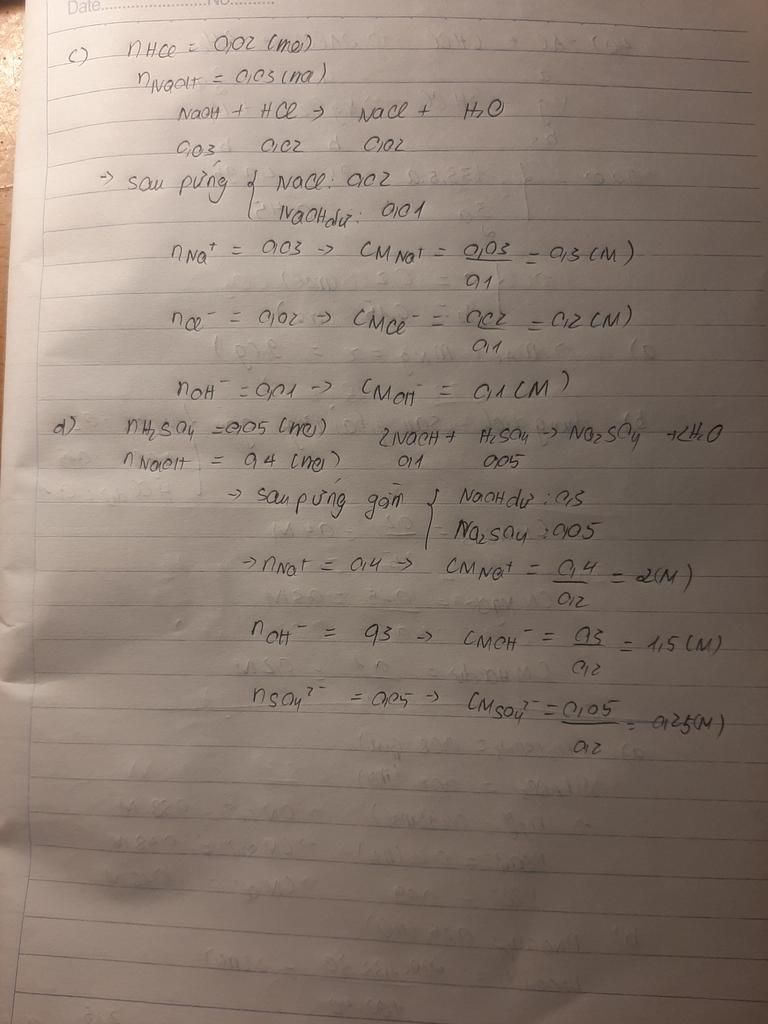 Date.....................No...........
c) nHCl = 0,02 (mol)
nNaOH = 0,03 (mol)
NaOH + HCl → NaCl + H₂O
0,03 0,02 0,02
→ sau pứng { NaCl: 0,02
NaOH dư: 0,01
nNa⁺ = 0,03 → CMNa⁺ = 0,03/0,1 = 0,3 (M)
nCl⁻ = 0,02 → CMCl⁻ = 0,02/0,1 = 0,2 (M)
nOH⁻ = 0,01 → CMOH⁻ = 0,1 (M)
d) nH₂SO₄ = 0,05 (mol) 2NaOH + H₂SO₄ → Na₂SO₄ + 2H₂O
nNaOH = 0,4 (mol) 0,1 0,05
→ sau pứng gồm { NaOH dư: 0,3
Na₂SO₄: 0,05
→ nNa⁺ = 0,4 → CMNa⁺ = 0,4/0,2 = 2(M)
nOH⁻ = 0,3 → CMOH⁻ = 0,3/0,2 = 1,5 (M)
nSO₄²⁻ = 0,05 → CMSO₄²⁻ = 0,05/0,2 = 0,25(M)